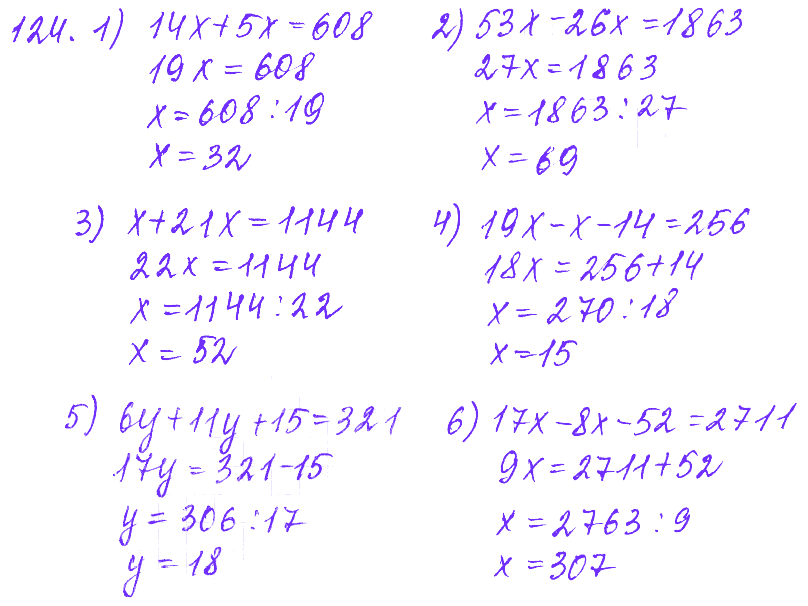 124. 1) 14x+5x=608
19x=608
x=608:19
x=32
2) 53x-26x=1863
27x=1863
x=1863:27
x=69
3) x+21x=1144
22x=1144
x=1144:22
x=52
4) 19x-x-14=256
18x=256+14
x=270:18
x=15
5) 6y+11y+15=321
17y=321-15
y=306:17
y=18
6) 17x-8x-52=2711
9x=2711+52
x=2763:9
x=307